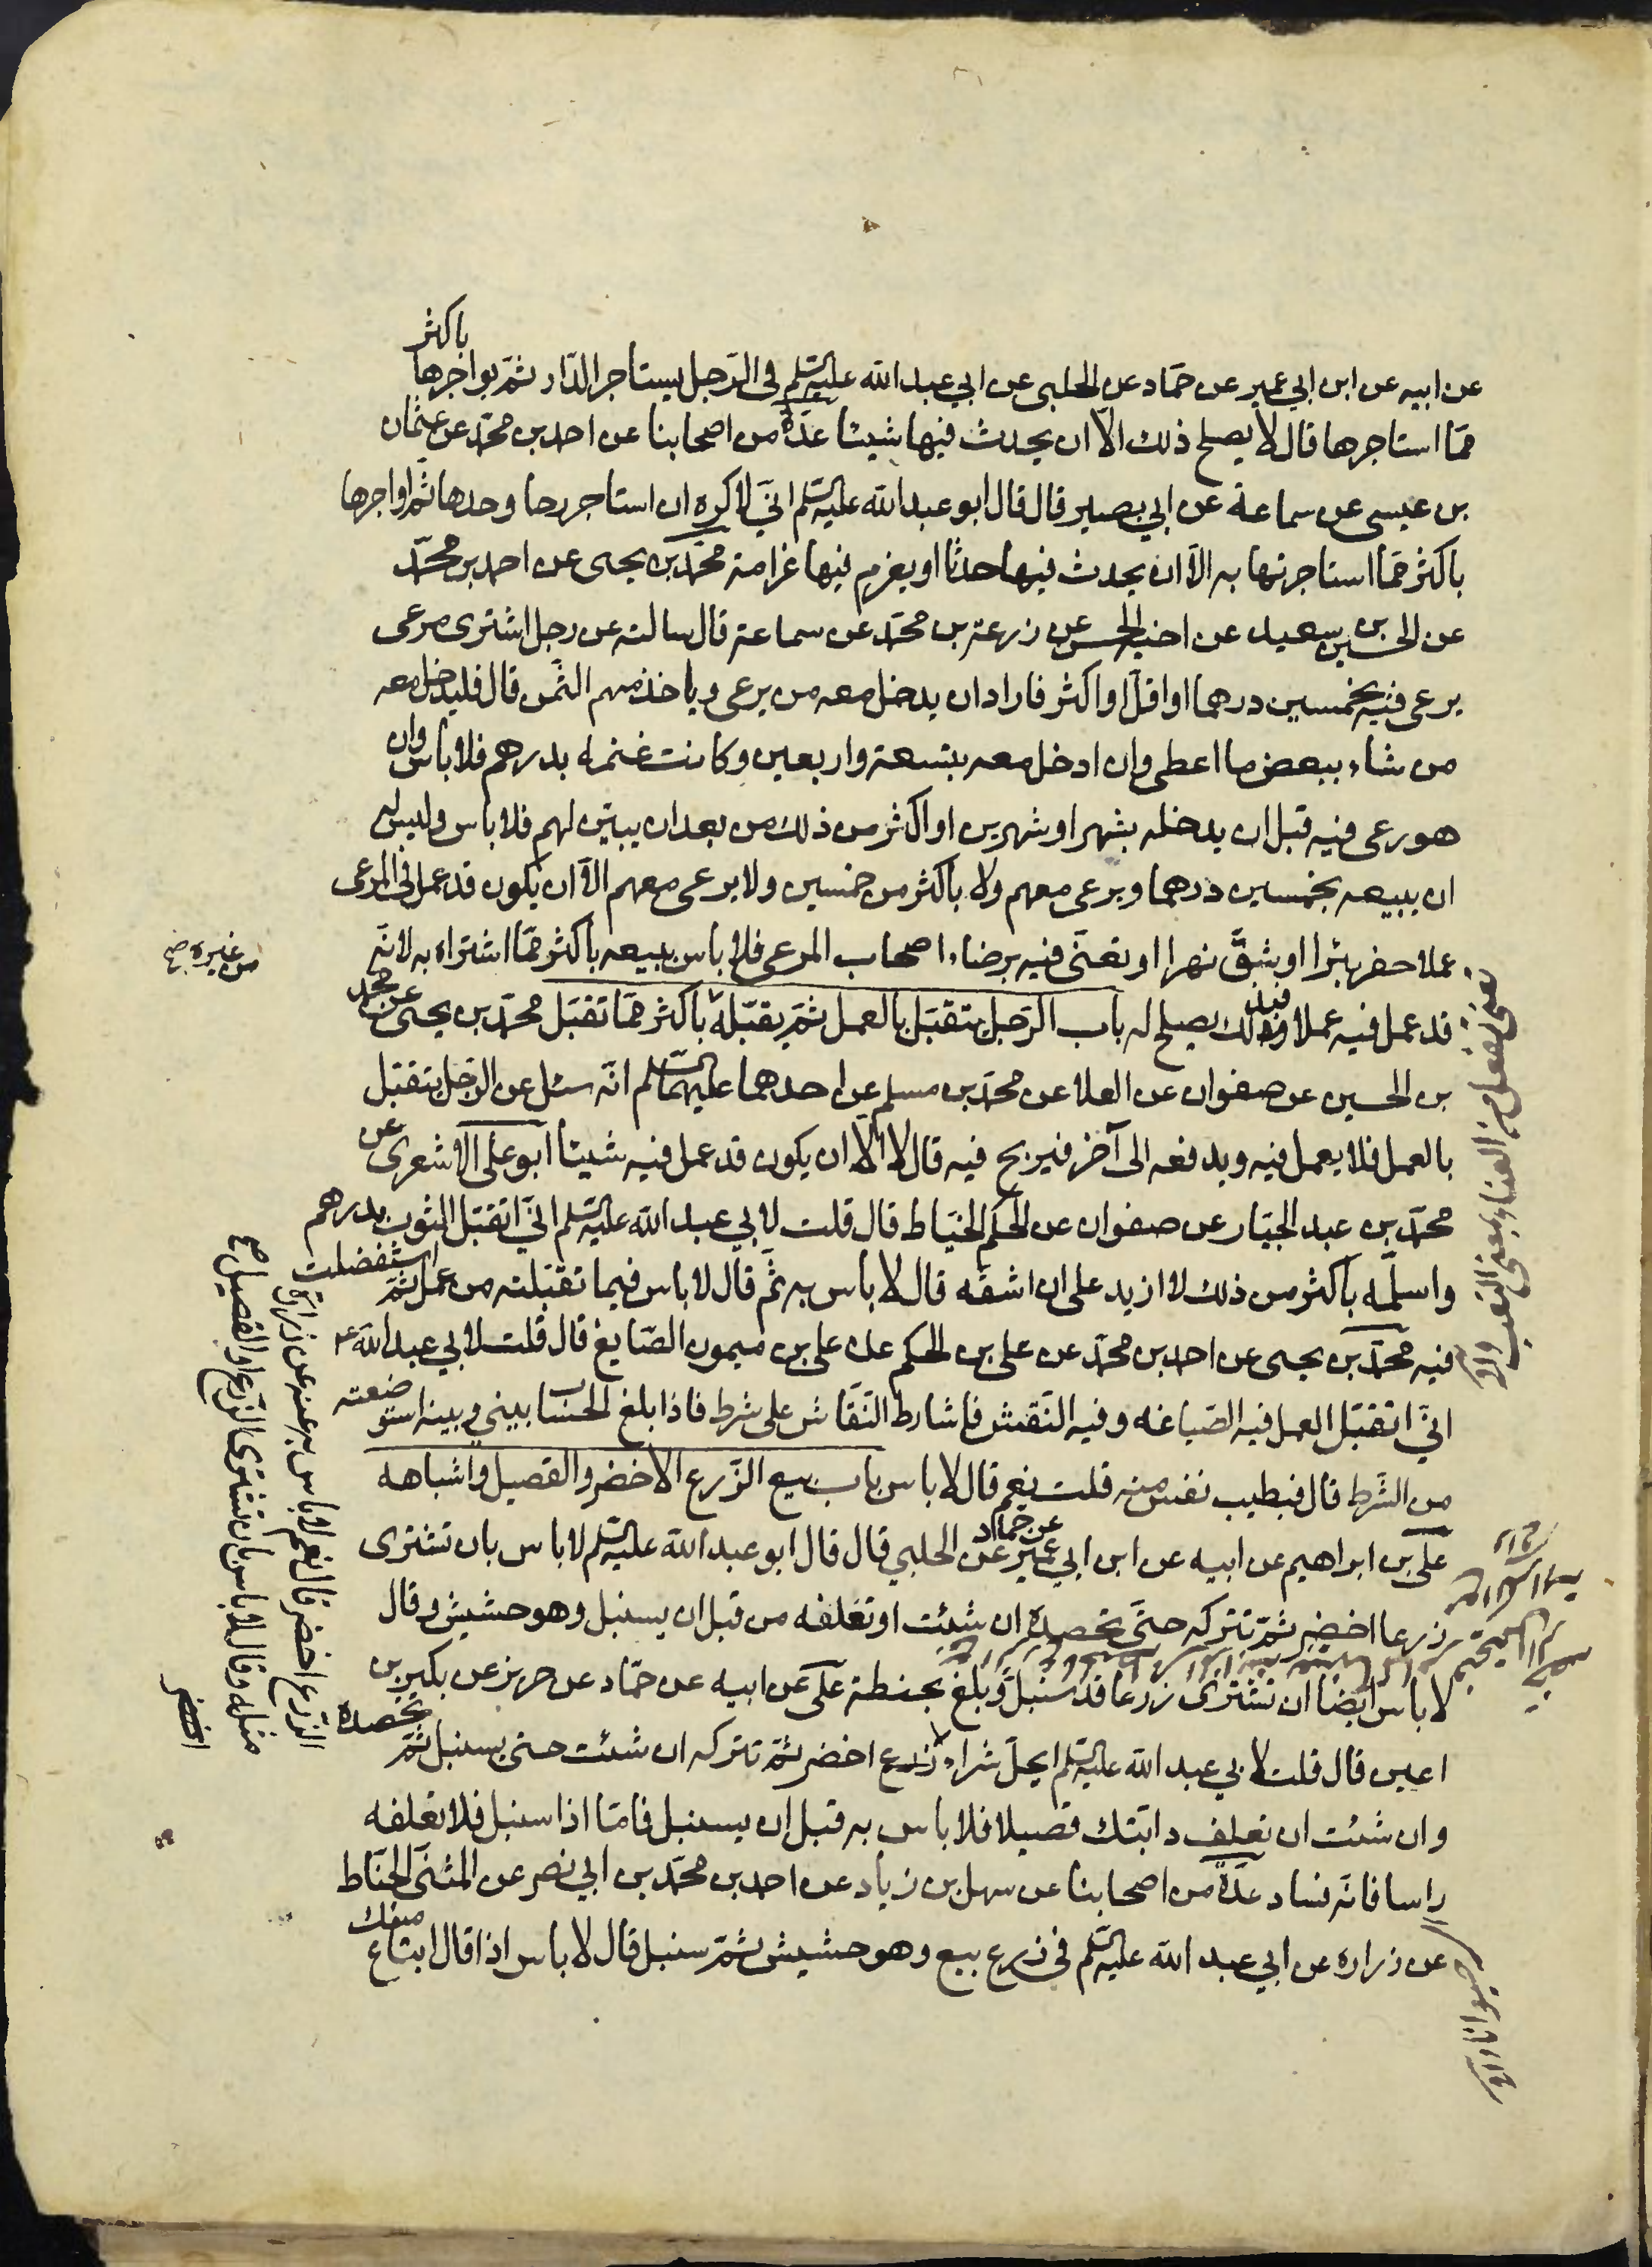 عن ابيه عن ابن ابي عمير عن حمّاد عن الحلبى عن ابي عبد الله عليه السلم فى الرّجل يستاجر الدّار ثمّ يواجرها باكثر
ممّا استاجرها قال لا يصلح ذلك الّا ان يحدث فيها شيئا عدّة من اصحابنا عن احمد بن محمّد عن عثمان
بن عيسى عن سماعة عن ابي بصير قال قال ابو عبد الله عليه السلم انّي لاكره ان استاجر رحا وحدها ثمّ اواجرها
باكثر ممّا استاجرتها به الّا ان يحدث فيها حدثا او يغرم فيها غرامة محمّد بن يحيى عن احمد بن محمّد
عن الحسين بن سعيد عن اخيه الحسن عن زرعة بن محمّد عن سماعة قال سالته عن رجل اشترى مرعى
يرعى فيه بخمسين درهما او اقلّ او اكثر فاراد ان يدخل معه من يرعى وياخذ منهم الثّمن قال فليدخل معه
من شاء ببعض ما اعطى وان ادخل معه بتسعة واربعين وكانت غنمه بدرهم فلا باس وان
هو رعى فيه قبل ان يدخله بشهر او شهرين او اكثر من ذلك من بعد ان يبيّن لهم فلا باس وليس له
ان يبيعه بخمسين درهما ويرعى معهم ولا باكثر من خمسين ولا يرعى معهم الّا ان يكون قد عمل فى المرعى
عملا حفر بئرا او يشقّ نهرا او تعنّى فيه برضاء اصحاب المرعى فلا باس ببيعه باكثر ممّا اشتراه به لانّه
قد عمل فيه عملا فبذلك يصلح له باب الرّجل يتقبّل بالعمل ثمّ يقبّله باكثر ممّا تقبّل محمّد بن يحيى عن محمد
بن الحسين عن صفوان عن العلا عن محمّد بن مسلم عن احدهما عليهما السلم انّه سئل عن الرّجل يتقبّل
بالعمل فلا يعمل فيه ويدفعه الى آخر فيربح فيه قال لا الّا ان يكون قد عمل فيه شيئا ابو على الاشعرى عن
محمّد بن عبد الجبّار عن صفوان عن الحكم الخيّاط قال قلت لابي عبد الله عليه السلم انّي اتقبّل الثوب بدرهم
واسلّمه باكثر من ذلك لا ازيد على ان اشقّه قال لا باس به ثمّ قال لا باس فيما تقبّلته من عمل ثمّ استفضلت
فيه محمّد بن يحيى عن احمد بن محمّد عن على بن الحكم عن على بن ميمون الصّايغ قال قلت لابي عبد الله ع
انّي اتقبّل العمل فيه الصّياغه وفيه النّقش فاشارط النّقّاش على شرط فاذا بلغ الحساب بيني وبينه استوضعته
من الشّرط قال فبطيب نفس منه قلت نعم قال لا باس باب بيع الزّرع الاخضر والقصيل واشباهه
علىّ بن ابراهيم عن ابيه عن ابن ابي عمير عن حماد عن الحلبي قال قال ابو عبد الله عليه السلم لا باس بان تشترى
زرعا اخضر ثمّ تتركه حتّى تحصده ان شئت او تعلفه من قبل ان يسنبل وهو حشيش وقال
لا باس ايضا ان تشترى زرعا قد سنبل وبلغ بحنطة علىّ عن ابيه عن حمّاد عن حريز عن بكير بن
اعين قال قلت لابي عبد الله عليه السلم ايحلّ شراء زرع اخضر ثمّ تتركه ان شئت حتى يسنبل ثمّ تحصده
وان شئت ان تعلف دابّتك قصيلا فلا باس به قبل ان يسنبل فامّا اذا سنبل فلا تعلفه
راسا فانّه فساد عدّة من اصحابنا عن سهل بن زياد عن احمد بن محمّد بن ابي نصر عن المثنّى الحنّاط
عن زراره عن ابي عبد الله عليه السلم فى زرع بيع وهو حشيش ثمّ سنبل قال لا باس اذا قال ابتاع منك
من غيره صح
تعنى تفعل من العناء بمعنى التعب
الزرع اخضر قال نعم لا باس به عنه عن زرارة
مثله وقال لا باس بان تشترى الزرع او القصيل صح
اخضر